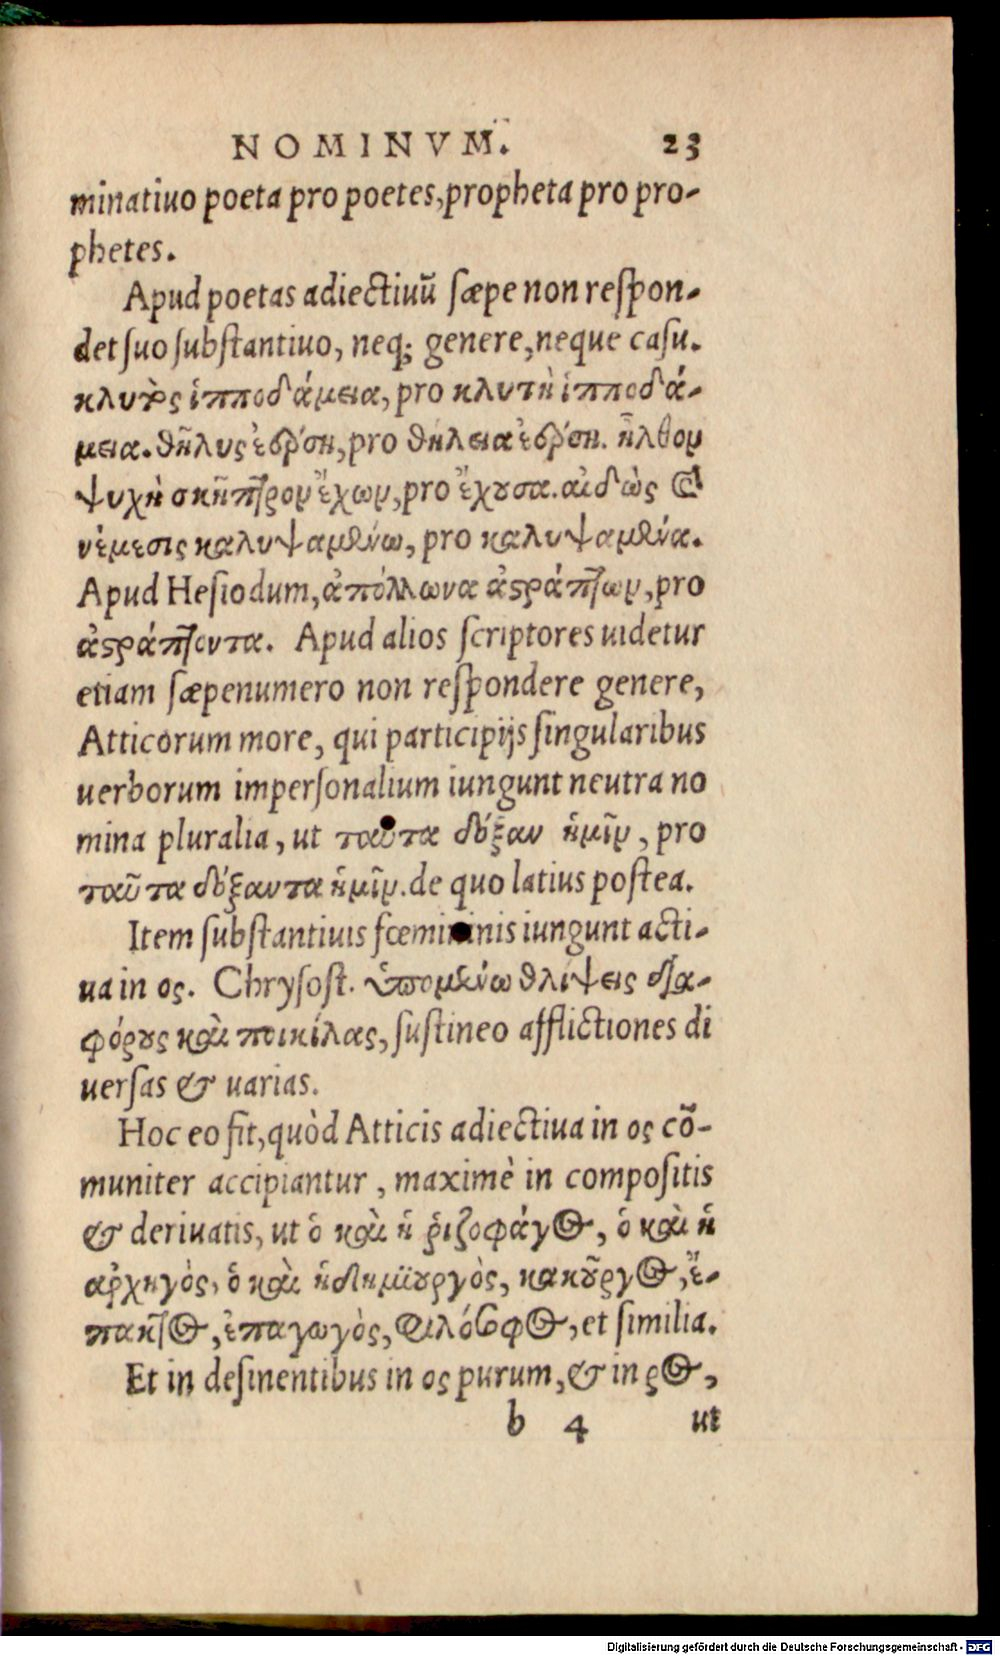 NOMINVM. 23
minatiuo poeta pro poetes, propheta pro pro-
phetes.
Apud poetas adiectiuũ sæpe non respon-
det suo substantiuo, neq; genere, neque casu.
κλυτὸς ἱπποδάμεια, pro κλυτὴ ἱπποδά-
μεια. θῆλυς ἐέρση, pro θήλεια ἐέρση. ἦλθον
ψυχὴ σκῆπτρον ἔχων, pro ἔχουσα. αἰδὼς καὶ
νέμεσις καλυψαμένω, pro καλυψαμένα.
Apud Hesiodum, ἀπόλλωνα ἀστράπτων, pro
ἀστράπτοντα. Apud alios scriptores uidetur
etiam sæpenumero non respondere genere,
Atticorum more, qui participijs singularibus
uerborum impersonalium iungunt neutra no
mina pluralia, ut ταῦτα δόξαν ἡμῖν, pro
ταῦτα δόξαντα ἡμῖν. de quo latius postea.
Item substantiuis fœmininis iungunt acti-
ua in ος. Chrysost. ὑπομένω θλίψεις δια-
φόρους καὶ ποικίλας, sustineo afflictiones di
uersas & uarias.
Hoc eo fit, quòd Atticis adiectiua in ος cõ-
muniter accipiantur, maximè in compositis
& deriuatis, ut ὁ καὶ ἡ ῥιζοφάγος, ὁ καὶ ἡ
ἀρχηγὸς, ὁ καὶ ἡ δημιουργὸς, κακοῦργος, ἔ-
πακτος, ἐπαγωγὸς, φιλόσοφος, et similia.
Et in desinentibus in ος purum, & in ρος,
b 4 ut
Digitalisierung gefördert durch die Deutsche Forschungsgemeinschaft - DFG